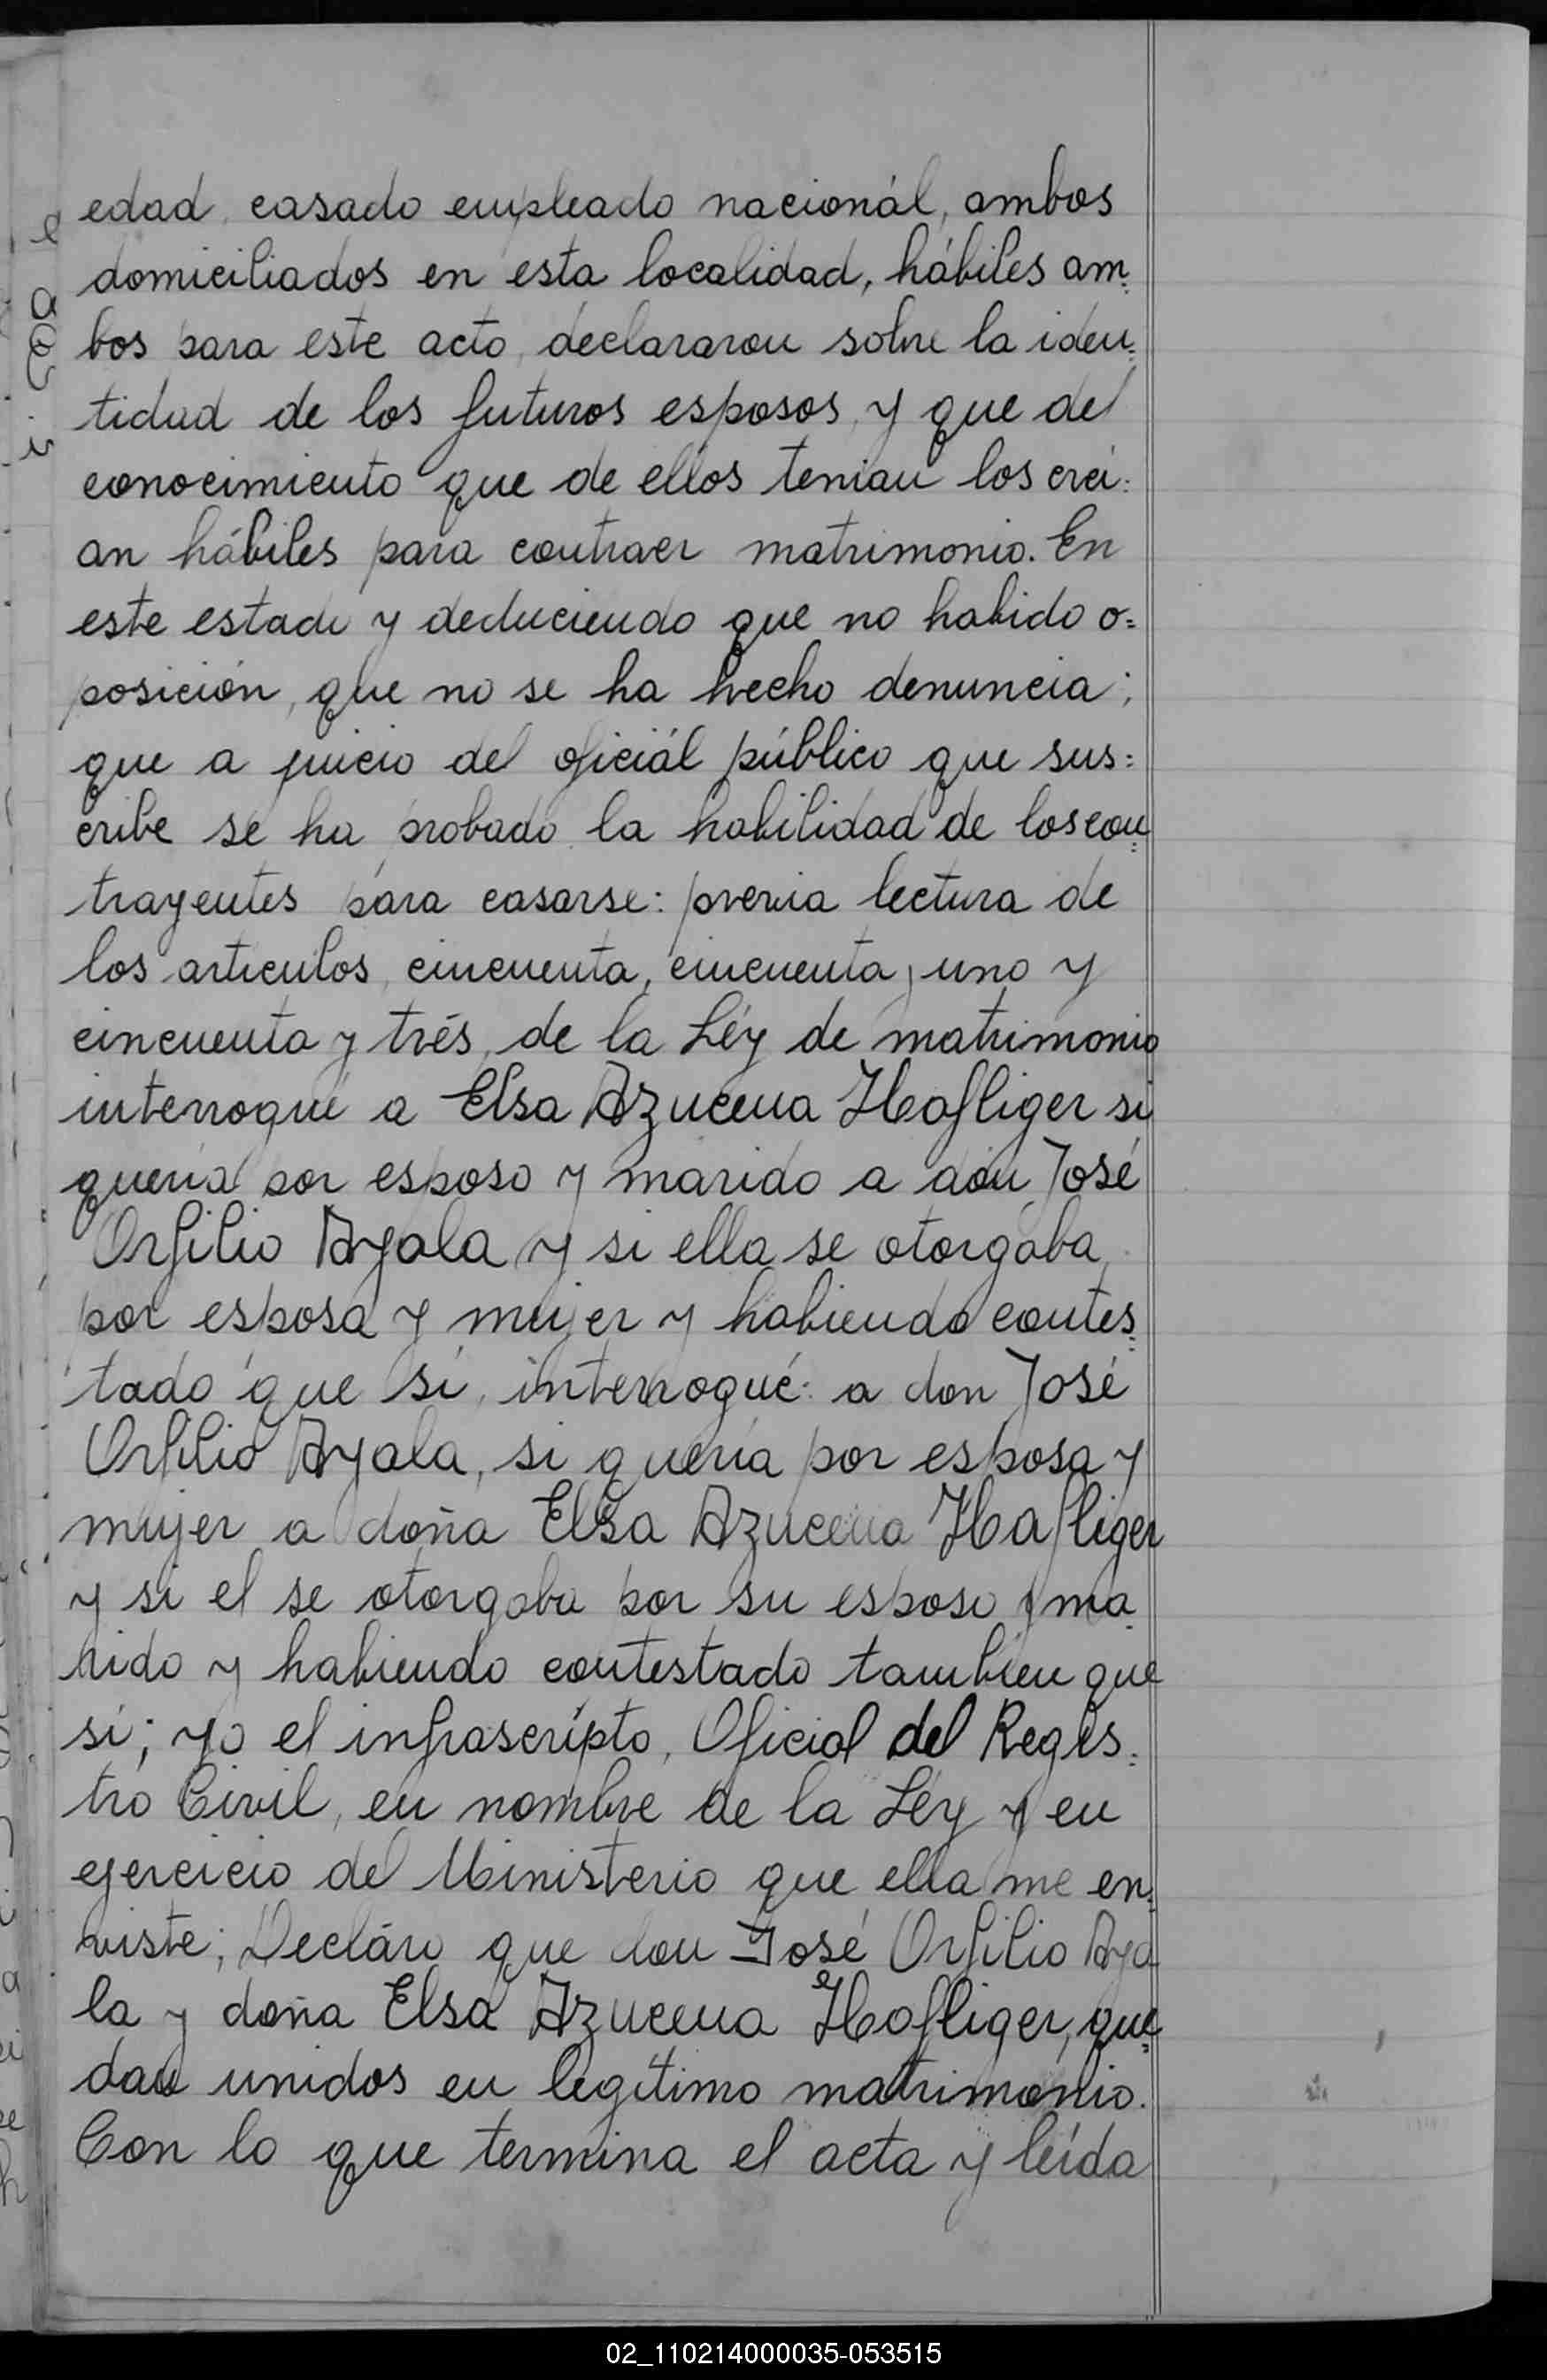 edad, casado empleado nacionál, ambos
domiciliados en esta localidad, hábiles am=
bos para este acto, declararon sobre la iden=
tidad de los futuros esposos, y que del
conocimiento que de ellos tenian los crei=
an hábiles para contraer matrimonio. En
este estado y deduciendo que no habido o=
posición, que no se ha hecho denuncia;
que a juicio del oficiál público que sus=
cribe se ha probado la habilidad de los con=
trayentes para casarse: previa lectura de
los articulos, cincuenta, cincuenta y uno y
cincuenta y trés, de la Léy de matrimonio
interroqué a Elsa Azucena Hafliger si
quería por esposo y marido a don José
Orfilio Ayala y si ella se otorgaba
por esposa y mujer y habiendo contes=
tado que si, interroqué: a don José
Orfilio Ayala, si quería por esposa y
mujer a doña Elsa Azucena Hafliger
y si el se otorgaba por su esposo y ma=
rido y habiendo contestado tambien que
sí; yo el infrascripto, Oficial del Regis=
tro Civil, en nombre de la Léy y en
ejercicio del Ministerio que ella me en=
viste; Decláro que don José Orfilio Aya
la y doña Elsa Azucena Hafliger, que=
dan unidos en legítimo matrimonio.
Con lo que termina el acta y leída
02_110214000035-053515